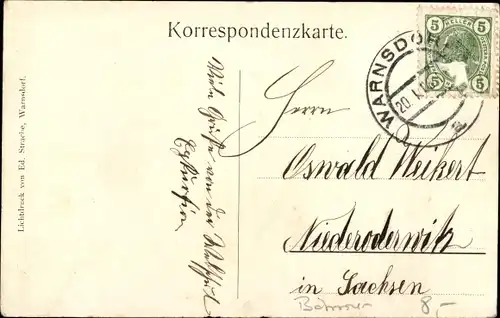 Korrespondenzkarte.
5 HELLER 5
5 5
WARNSDORF
20
Viele Grüße von der
Herrn
Oswald Weikert
Niederoderwitz
in Sachsen
8,-
Lichtdruck von Ed. Strache, Warnsdorf.